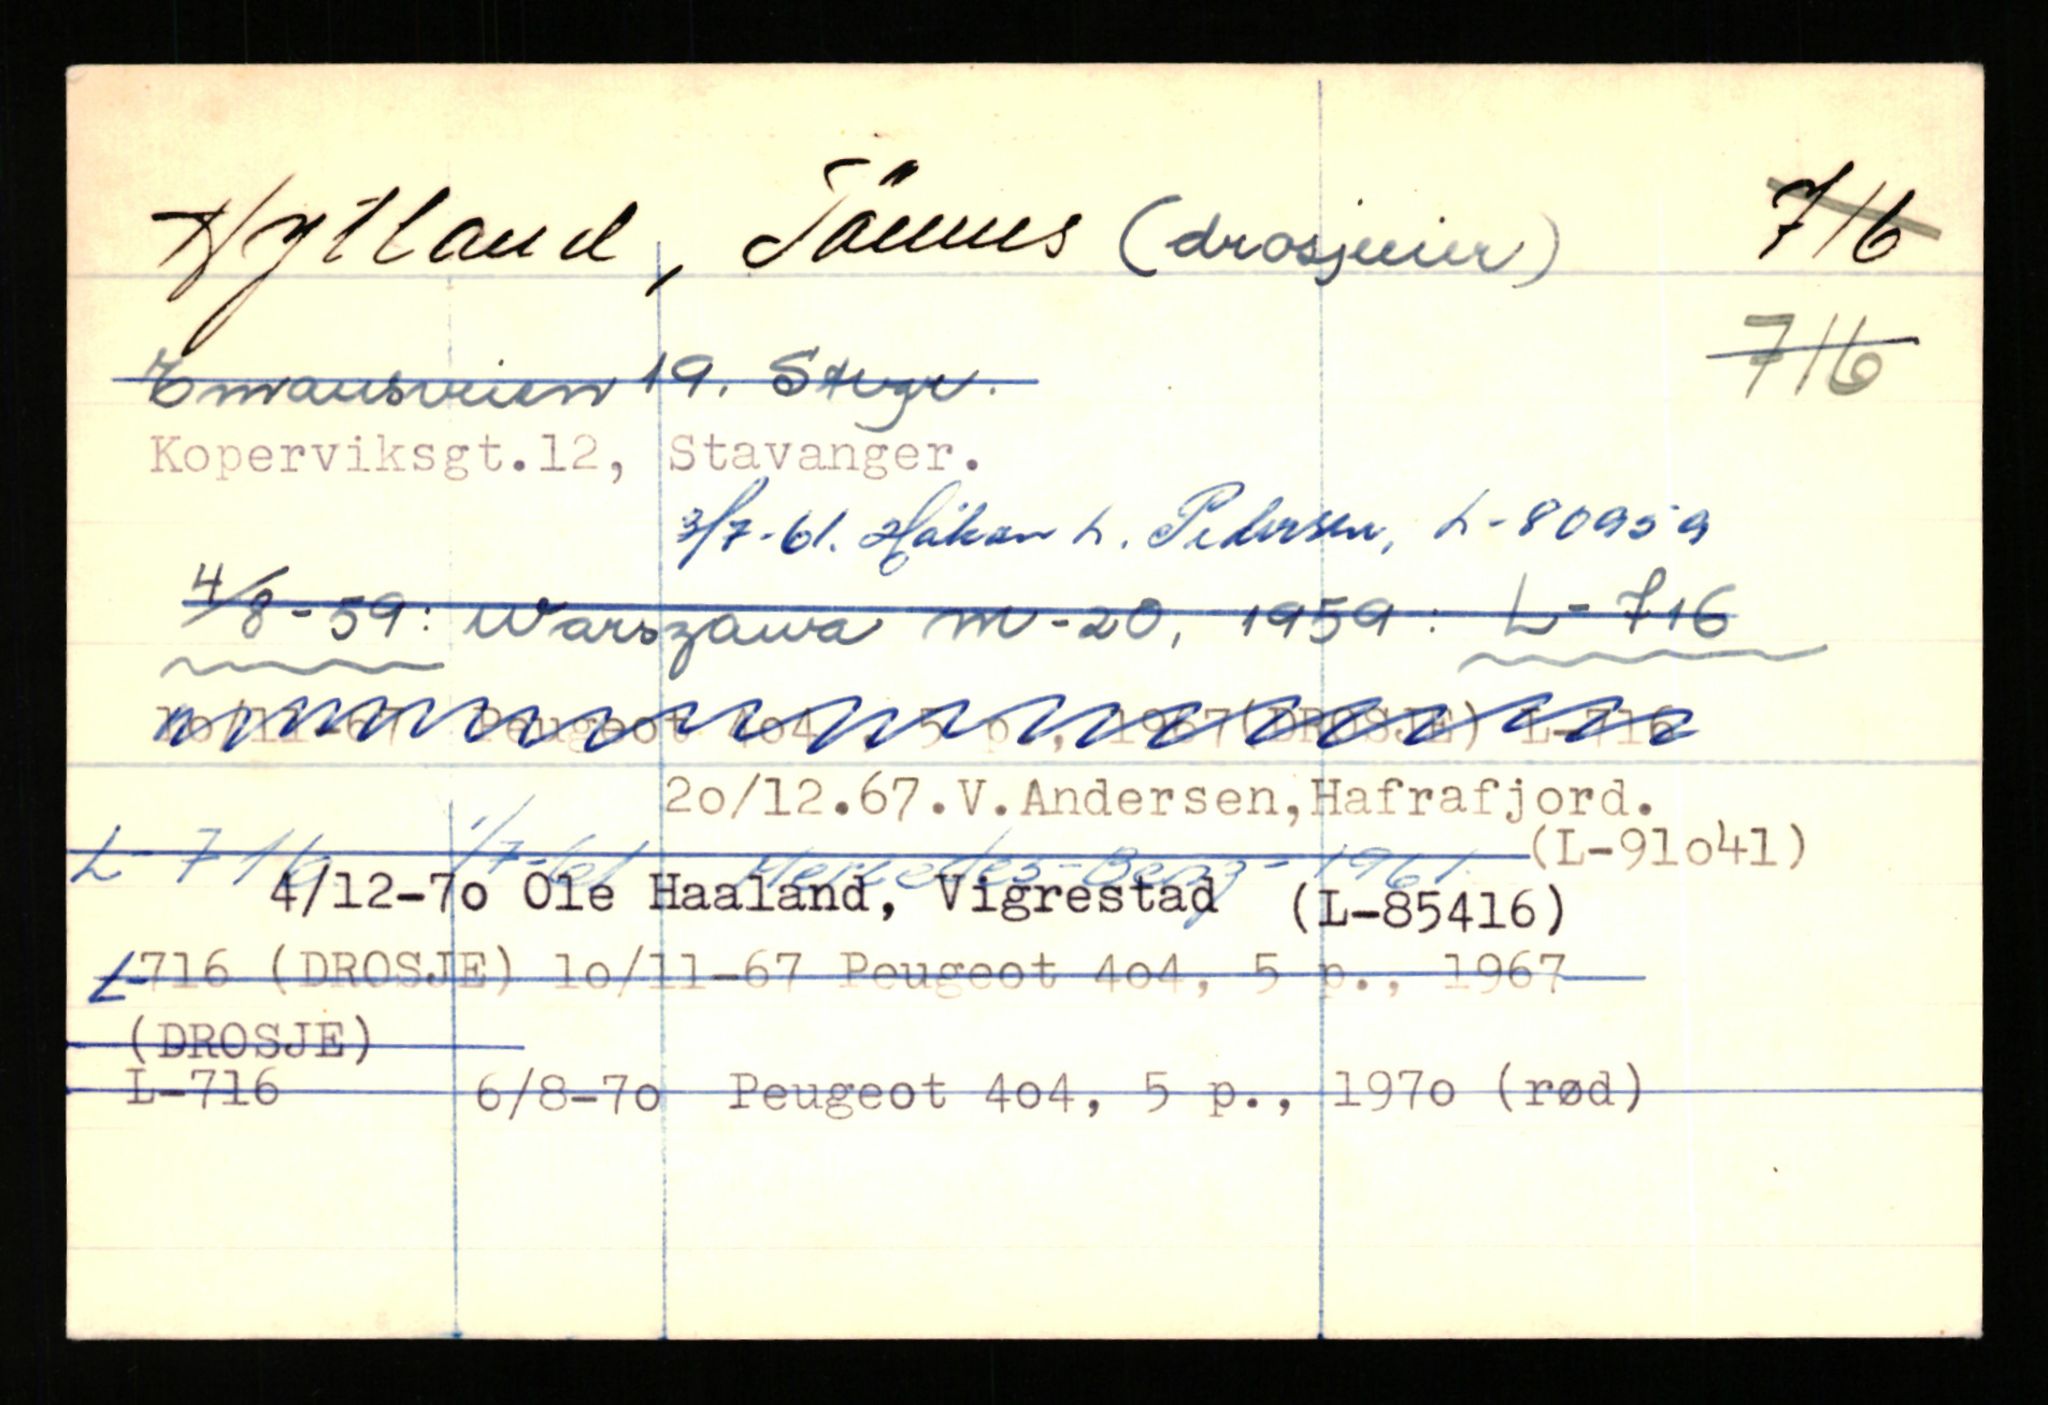 Hytland, Tönnes (drosjeeier) 716
716
Emausveien 19. Stvgr.
Koperviksgt.12, Stavanger.
3/7-61. Håkon L. Pedersen, L-80959
4/8-59: Warszawa M-20, 1959: L-716
10/11-67 Peugeot 4o4, 5 p., 1967(DROSJE) L-716
2o/12.67.V.Andersen,Hafrafjord.
(L-91o41)
L-716 1/7-61 Mercedes-Benz-1961.
4/12-7o Ole Haaland, Vigrestad (L-85416)
L-716 (DROSJE) 1o/11-67 Peugeot 4o4, 5 p., 1967
(DROSJE)
L-716 6/8-7o Peugeot 4o4, 5 p., 197o (rød)